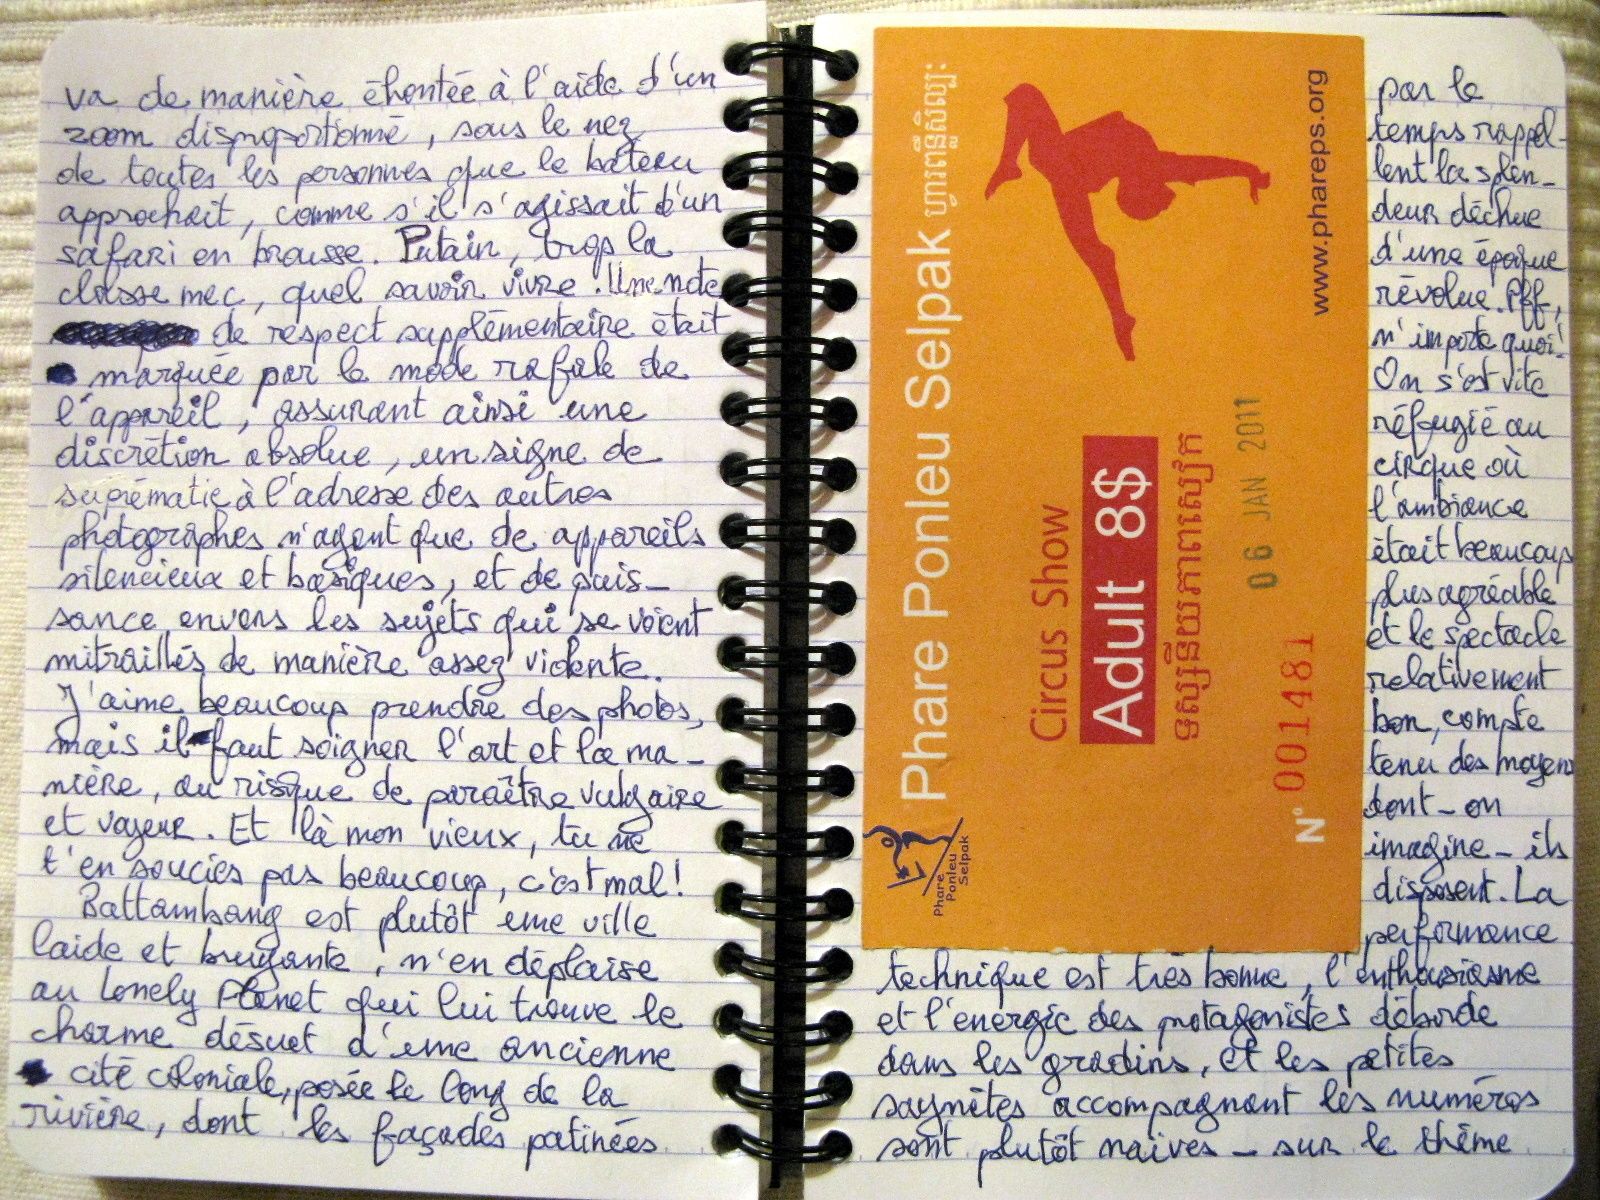 va de manière éhontée à l'aide d'un
zoom disproportionné, sous le nez
de toutes les personnes que le bateau
approchait, comme s'il s'agissait d'un
safari en brousse. Putain, trop la
classe mec, quel savoir vivre. Une note
de respect supplémentaire était
marquée par le mode rafale de
l'appareil, assurant ainsi une
discrétion absolue, un signe de
suprématie à l'adresse des autres
photographes n'ayant que de appareils
silencieux et basiques, et de puis-
sance envers les sujets qui se voient
mitraillés de manière assez violente.
J'aime beaucoup prendre des photos,
mais il faut soigner l'art et la ma-
nière, au risque de paraître vulgaire
et voyeur. Et là mon vieux, tu ne
t'en soucies pas beaucoup, c'est mal!
Battambang est plutôt une ville
laide et bruyante, n'en déplaise
au Lonely Planet qui lui trouve le
charme désuet d'une ancienne
cité coloniale, posée le long de la
rivière, dont les façades patinées
Phare Ponleu Selpak ហ្វារពន្លឺសិល្បៈ
Circus Show
Adult 8$
ទស្សនីយភាពសៀក
06 JAN 2011
N° 001481
www.phareps.org
Phare
Ponleu
Selpak
par le
temps rappel-
lent la splen-
deur déchue
d'une époque
révolue. Pff,
n'importe quoi!
On s'est vite
réfugié au
cirque où
l'ambiance
était beaucoup
plus agréable
et le spectacle
relativement
bon, compte
tenu des moyens
dont - on
imagine - ils
disposent. La
performance
technique est très bonne, l'enthousiasme
et l'énergie des protagonistes déborde
dans les gradins, et les petites
saynètes accompagnant les numéros
sont plutôt naïves - sur le thème